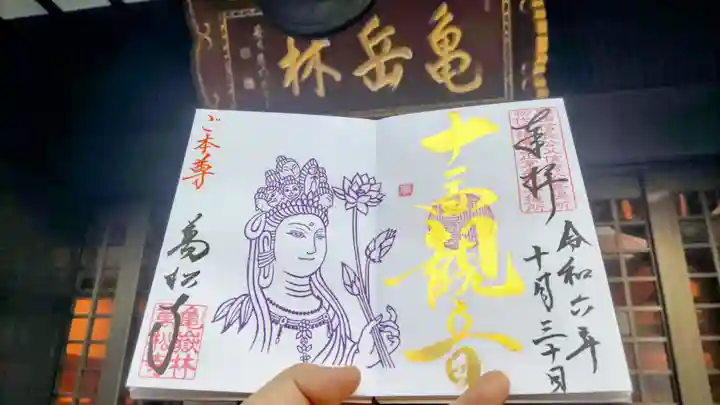 亀岳林
奉拝
令和六年
十月三十日
十一面観音
ご本尊
萬松寺
亀嶽林
萬松寺